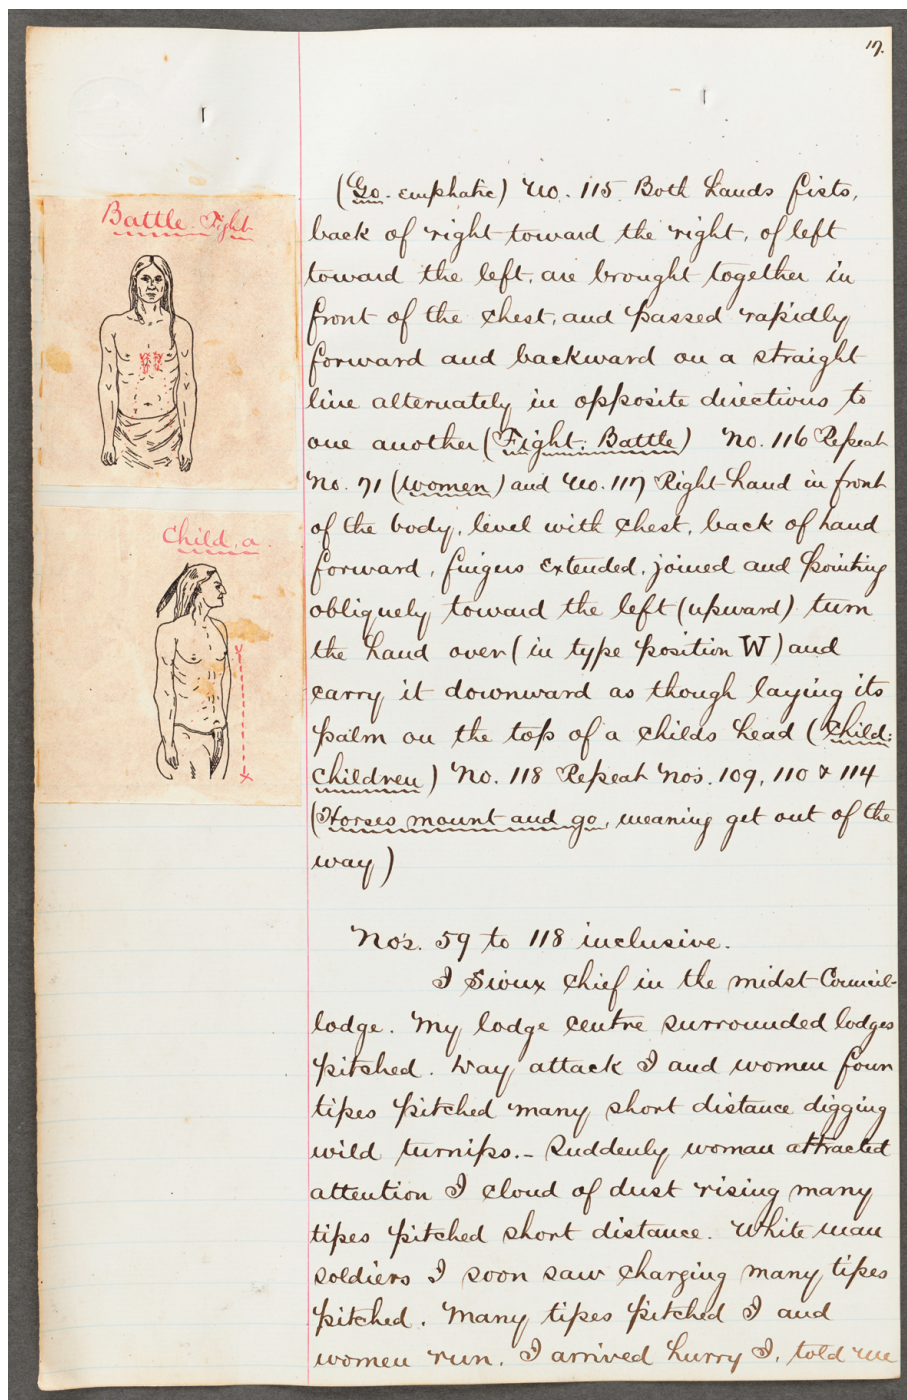 17.
Battle. Fight
Child, a.
(Go. emphatic) No. 115 Both hands fists,
back of right toward the right, of left
toward the left, are brought together in
front of the chest, and passed rapidly
forward and backward on a straight
line alternately in opposite directions to
one another (Fight: Battle) No. 116 Repeat
No. 71 (women) and No. 117 Right hand in front
of the body, level with chest, back of hand
forward, fingers extended, joined and pointing
obliquely toward the left (upward) turn
the hand over (in type position W) and
carry it downward as though laying its
palm on the top of a childs head (Child:
Children) No. 118 Repeat No's. 109, 110 & 114
(Horses mount and go, meaning get out of the
way)
No's. 59 to 118 inclusive.
I Sioux chief in the midst Council-
lodge. My lodge centre surrounded lodges
pitched. Day attack I and women four
tipes pitched many short distance digging
wild turnips.- Suddenly woman attracted
attention I cloud of dust rising many
tipes pitched short distance. White man
soldiers I soon saw charging many tipes
pitched. Many tipes pitched I and
women run. I arrived hurry I, told me